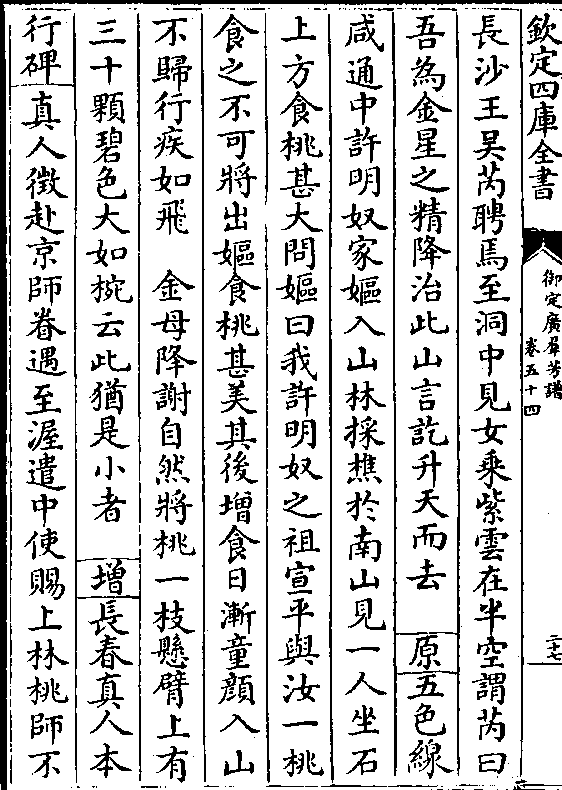 欽定四庫全書
御定廣羣芳譜
卷五十四
二十七
長沙王吳芮聘焉至洞中見女乘紫雲在半空謂芮曰
吾為金星之精降治此山言訖升天而去　原五色線
咸通中許明奴家嫗入山林採樵於南山見一人坐石
上方食桃甚大問嫗曰我許明奴之祖宣平與汝一桃
食之不可將出嫗食桃甚美其後增食日漸童顔入山
不歸行疾如飛　金母降謝自然將桃一枝懸臂上有
三十顆碧色大如椀云此猶是小者　增長春真人本
行碑真人徵赴京師眷遇至渥遣中使賜上林桃師不